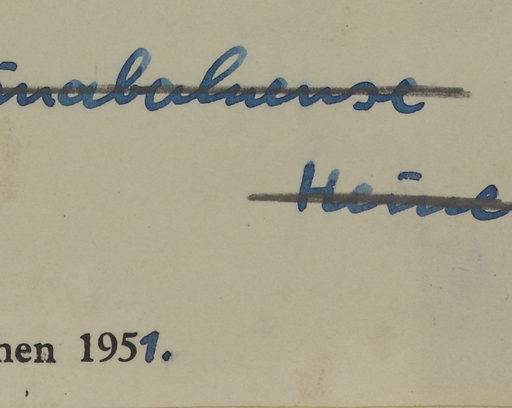 inabaluense
Heine
nen 1951.